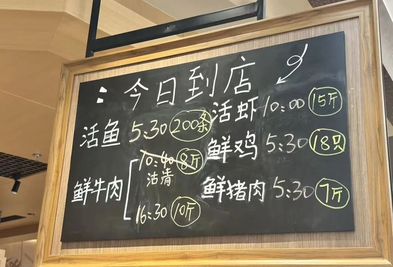 : 今日到店
活鱼 5:30 200条
活虾 10:00 15斤
鲜鸡 5:30 18只
鲜牛肉
10:40 8斤
沽清
16:30 10斤
鲜猪肉 5:30 7斤